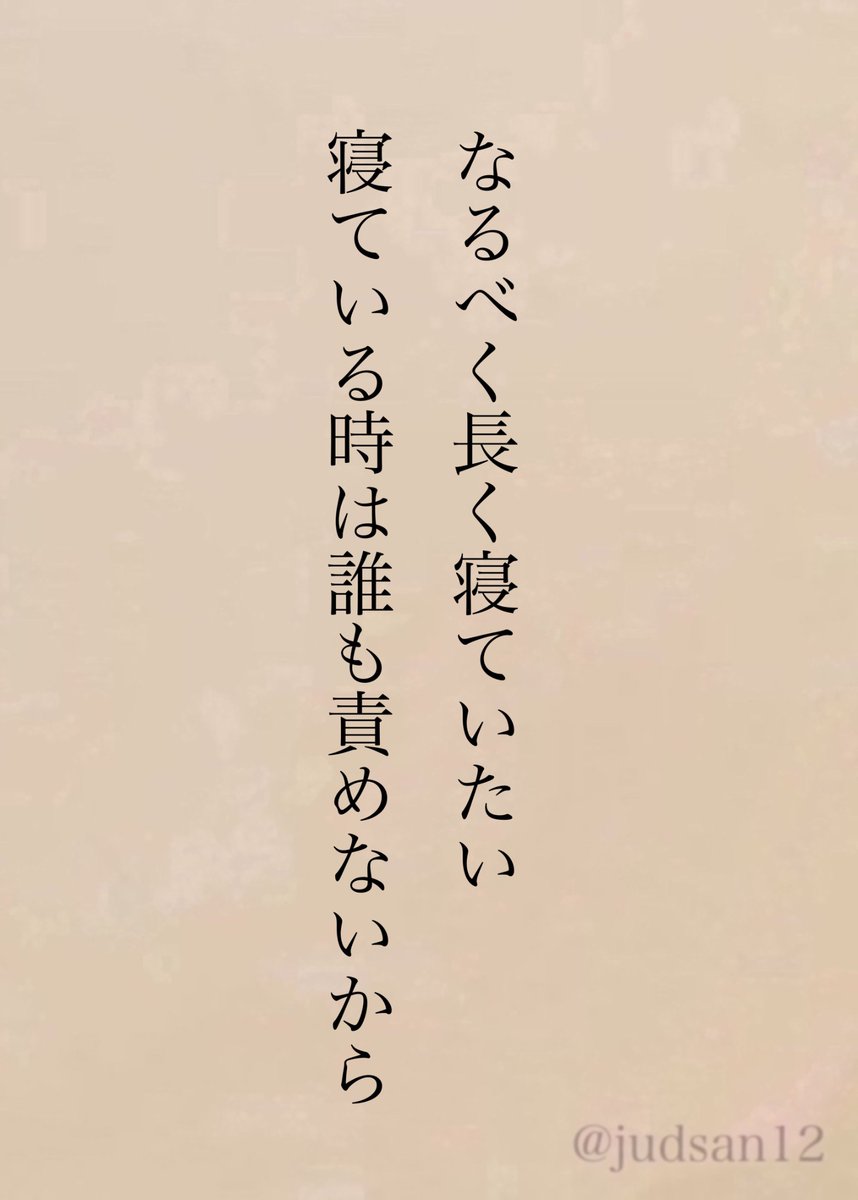 なるべく長く寝ていたい
寝ている時は誰も責めないから
@judsan12